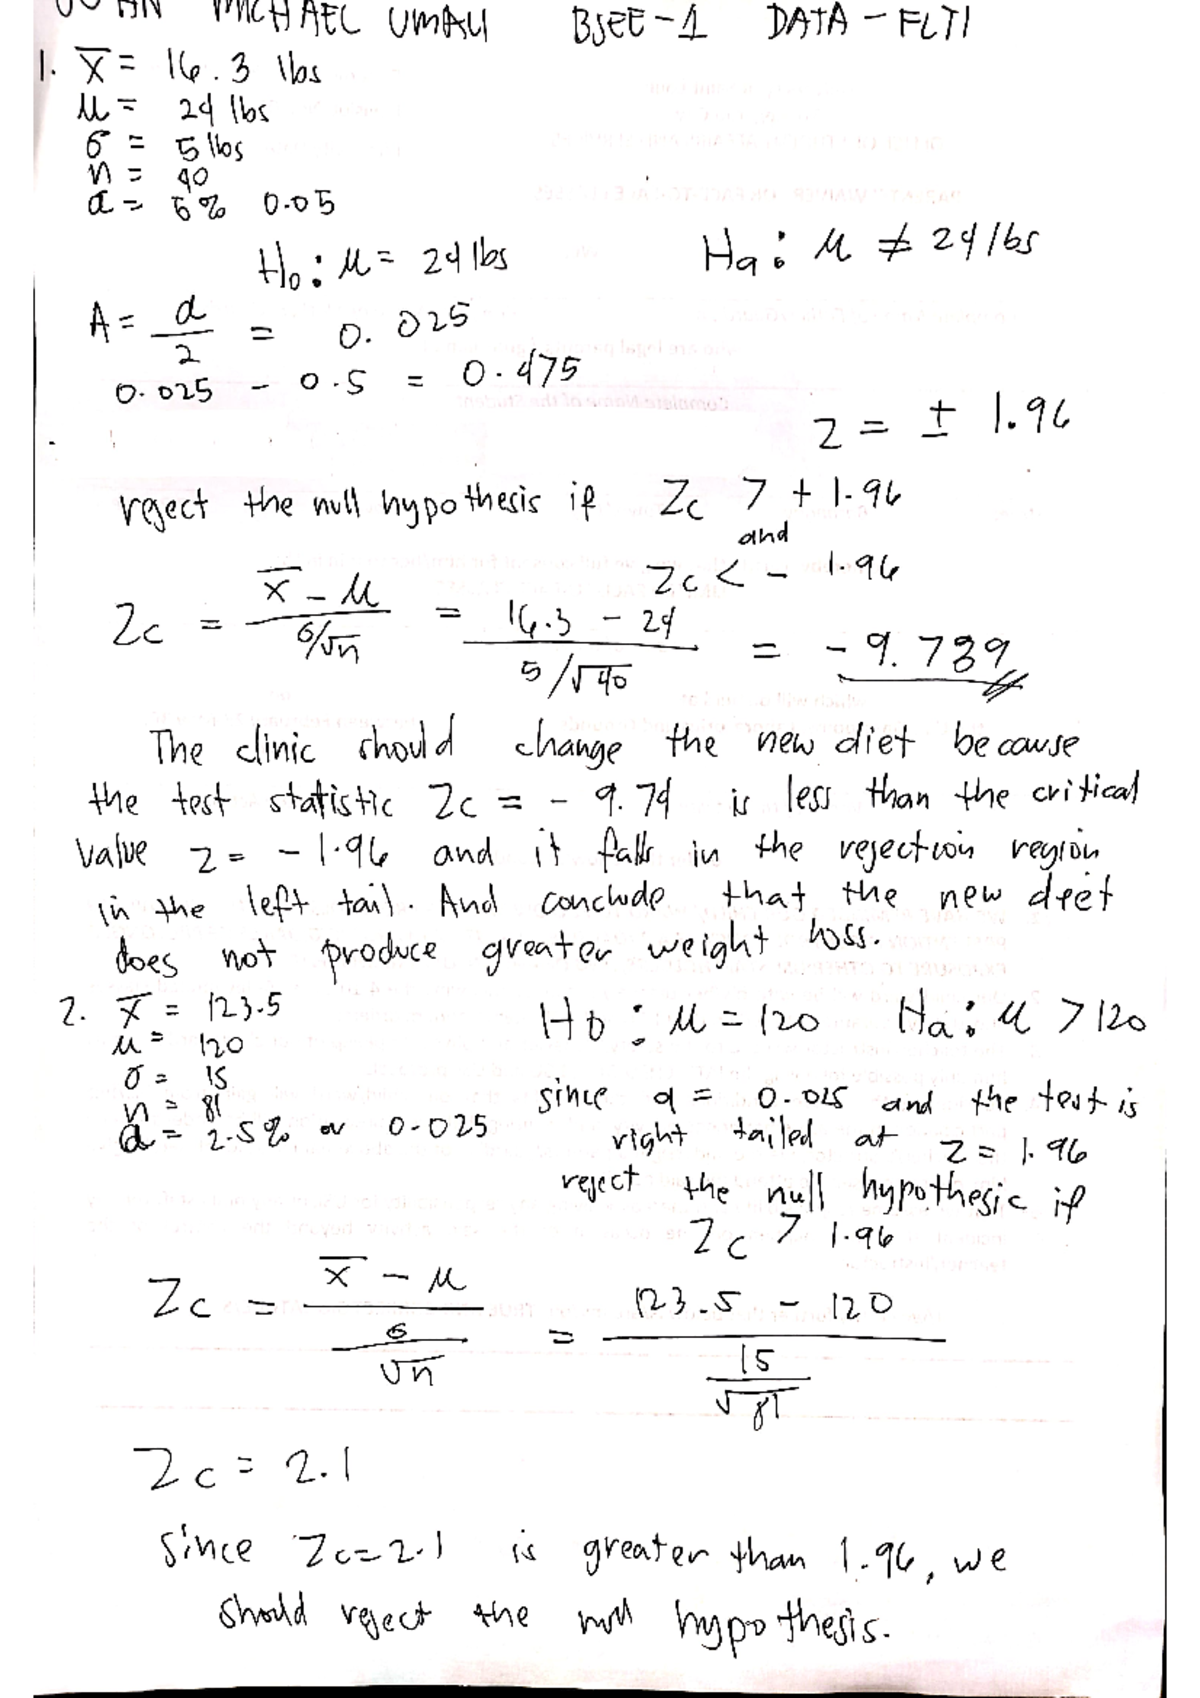 MICHAEL UMALI BSEE-1 DATA-FLTI
1. x̄ = 16.3 lbs
μ = 24 lbs
σ = 5 lbs
n = 40
α = 5% 0.05
H₀: μ = 24 lbs Ha: μ ≠ 24 lbs
A = α/2 = 0.025
0.025 - 0.5 = 0.475
z = ± 1.96
reject the null hypothesis if Zc > +1.96
and
Zc < -1.96
Zc = (x̄ - μ)/(σ/√n) = (16.3 - 24)/(5/√40) = -9.739
The clinic should change the new diet because
the test statistic Zc = -9.74 is less than the critical
value z = -1.96 and it falls in the rejection region
in the left tail. And conclude that the new diet
does not produce greater weight loss.
2. x̄ = 123.5
μ = 120
σ = 15
n = 81
α = 2.5% or 0.025
H₀: μ = 120 Ha: μ > 120
since α = 0.025 and the test is
right tailed at z = 1.96
reject the null hypothesis if
Zc > 1.96
Zc = (x̄ - μ)/(σ/√n) = (123.5 - 120)/(15/√81)
Zc = 2.1
Since Zc = 2.1 is greater than 1.96, we
should reject the null hypothesis.